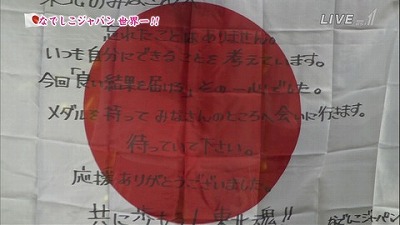 なでしこジャパン 世界一!!
LIVE
東北のみなさん
忘れたことはありません。
いつも自分にできることを考えています。
今回「良い結果を届ける」その一心でした。
メダルを持ってみなさんのところへ会いに行きます。
待っていて下さい。
応援ありがとうございました。
共に歩もう!東北魂!!
なでしこジャパン